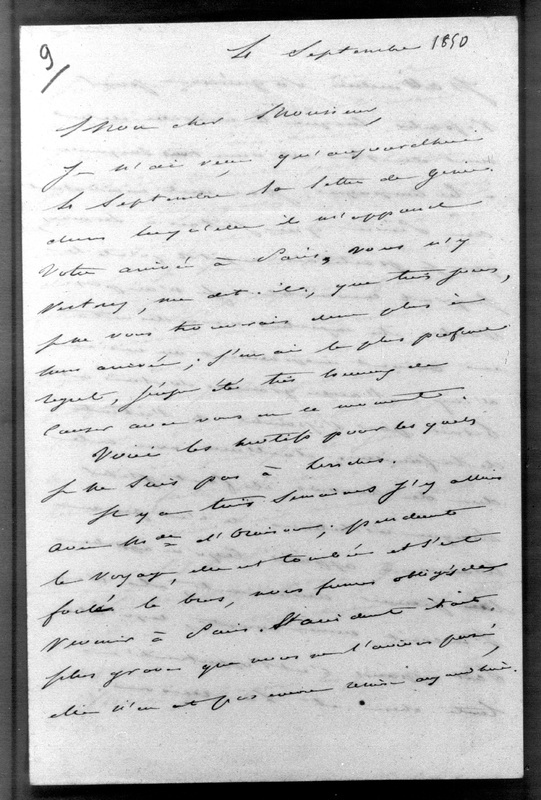 9/
4 Septembre 1850
Mon cher Monsieur,
Je n'ai reçu qu'aujourdhui
4 Septembre la lettre de
dans laquelle il m'apprend
votre arrivée à Paris, vous n'y
resterez, me dit-il, que très peu,
je ne vous trouverais donc plus à
mon arrivée; j'en ai le plus profond
regret, j'eusse été très heureux de
causer avec vous en ce moment.
Voici les motifs pour lesquels
je ne suis pas à Londres.
Il y a trois semaines j'y allais
avec Mde d'Oraison; pendant
le voyage, elle est tombée et s'est
foulé le bras, nous fumes obligés de
revenir à Paris. L'accident était
plus grave que nous ne l'avions pensé,
elle n'en est pas encore remise aujourdhui.